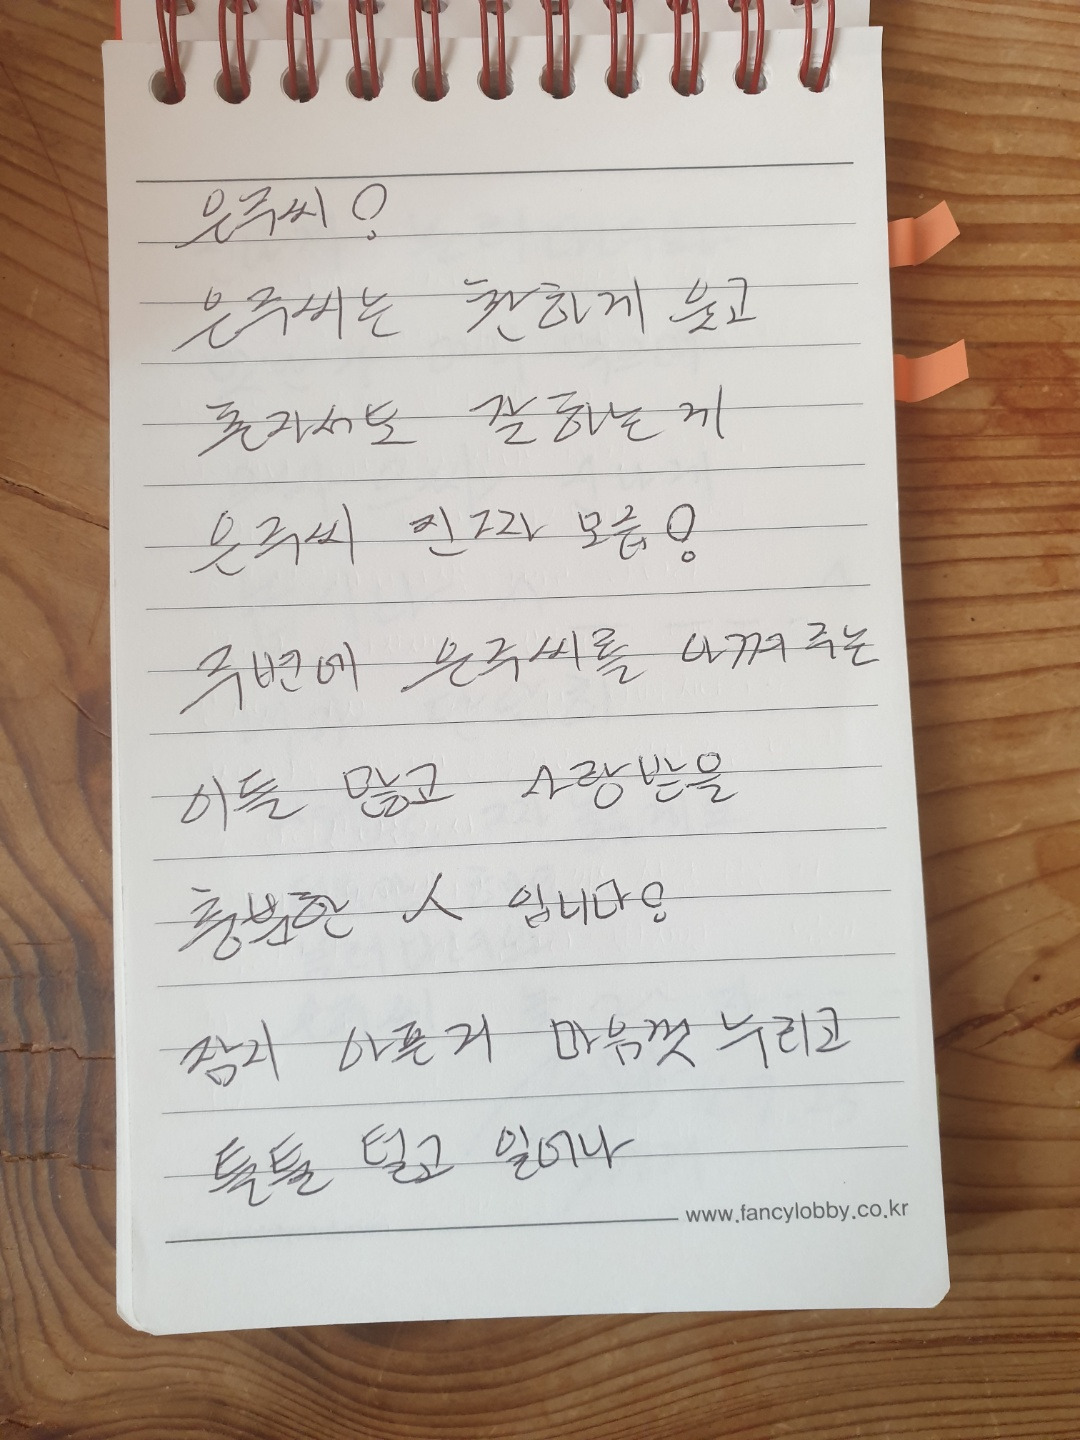 은주씨!
은주씨는 환하게 웃고
혼자서도 잘하는 게
은주씨 인 그라 모습!
주변에 은주씨를 아껴 주는
이들 많고 사랑받을
충분한 人 입니다!
잠시 아픈 거 마음껏 누리고
툴툴 털고 일어나
www.fancylobby.co.kr